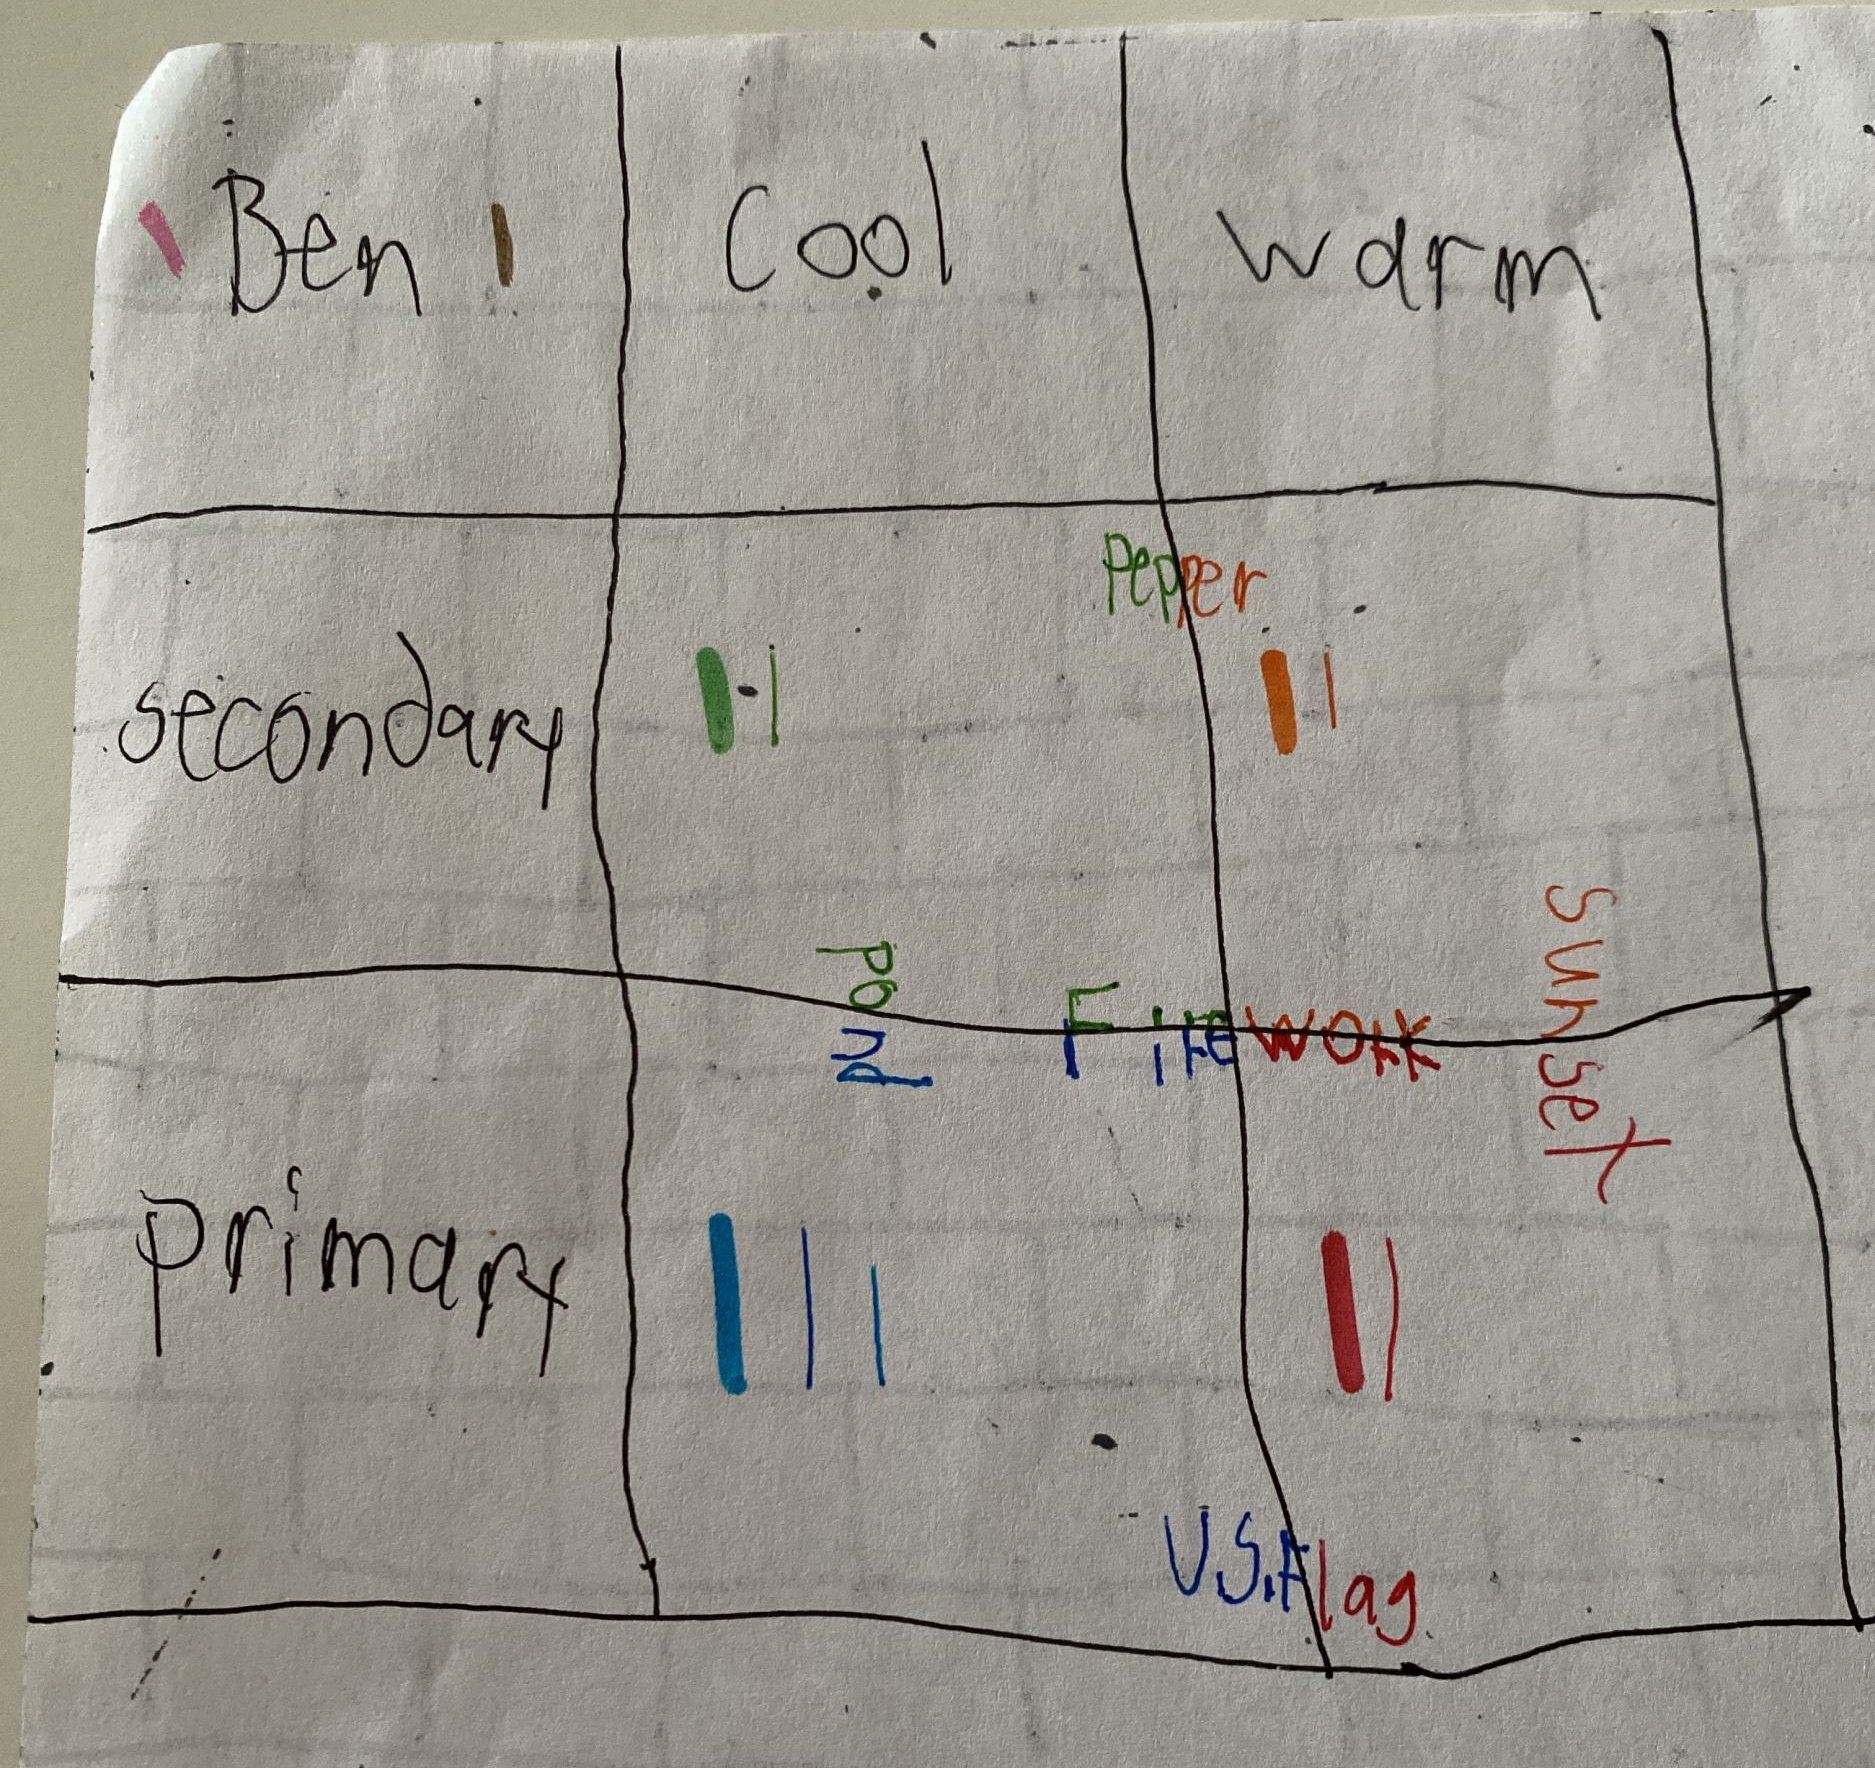 Ben Cool Warm
Pepper
secondary
Pond
Firework
Sunset
primary
U.S.Flag